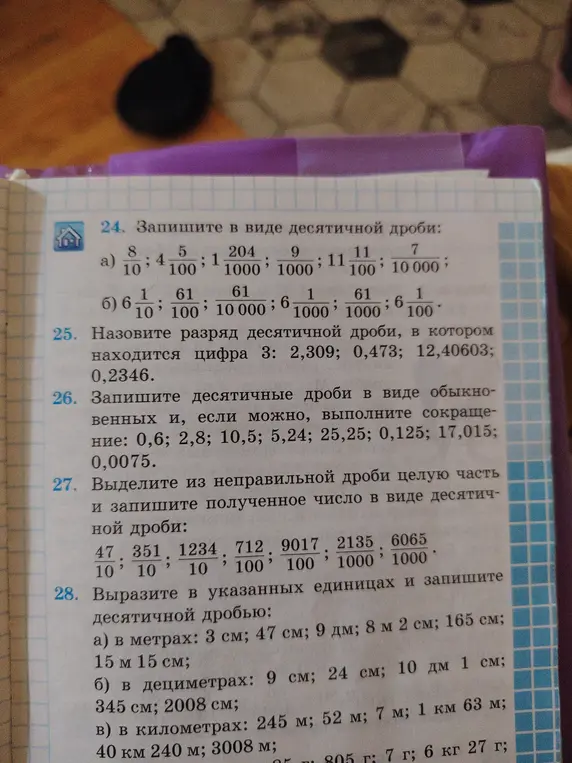 24. Запишите в виде десятичной дроби:
а) 8/10; 4 5/100; 1 204/1000; 9/1000; 11 11/100; 7/10 000;
б) 6 1/10; 61/100; 61/10 000; 6 1/1000; 61/1000; 6 1/100.
25. Назовите разряд десятичной дроби, в котором
находится цифра 3: 2,309; 0,473; 12,40603;
0,2346.
26. Запишите десятичные дроби в виде обыкно-
венных и, если можно, выполните сокраще-
ние: 0,6; 2,8; 10,5; 5,24; 25,25; 0,125; 17,015;
0,0075.
27. Выделите из неправильной дроби целую часть
и запишите полученное число в виде десятич-
ной дроби:
47/10; 351/10; 1234/10; 712/100; 9017/100; 2135/1000; 6065/1000.
28. Выразите в указанных единицах и запишите
десятичной дробью:
а) в метрах: 3 см; 47 см; 9 дм; 8 м 2 см; 165 см;
15 м 15 см;
б) в дециметрах: 9 см; 24 см; 10 дм 1 см;
345 см; 2008 см;
в) в километрах: 245 м; 52 м; 7 м; 1 км 63 м;
40 км 240 м; 3008 м;
805 г; 7 г; 6 кг 27 г;